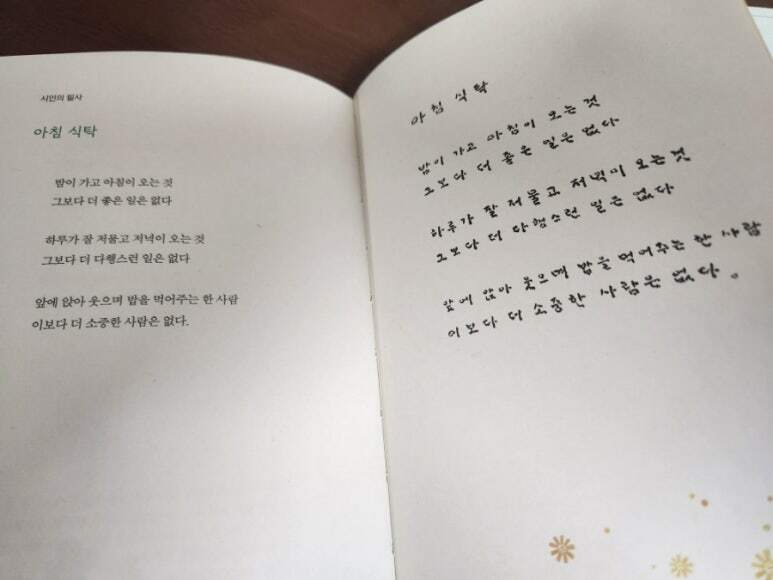 시인의 필사
아침 식탁
밤이 가고 아침이 오는 것
그보다 더 좋은 일은 없다
하루가 잘 저물고 저녁이 오는 것
그보다 더 다행스런 일은 없다
앞에 앉아 웃으며 밥을 먹어주는 한 사람
이보다 더 소중한 사람은 없다.
아침 식탁
밤이 가고 아침이 오는 것
그보다 더 좋은 일은 없다
하루가 잘 저물고 저녁이 오는 것
그보다 더 다행스런 일은 없다
앞에 앉아 웃으며 밥을 먹어주는 한 사람
이보다 더 소중한 사람은 없다.